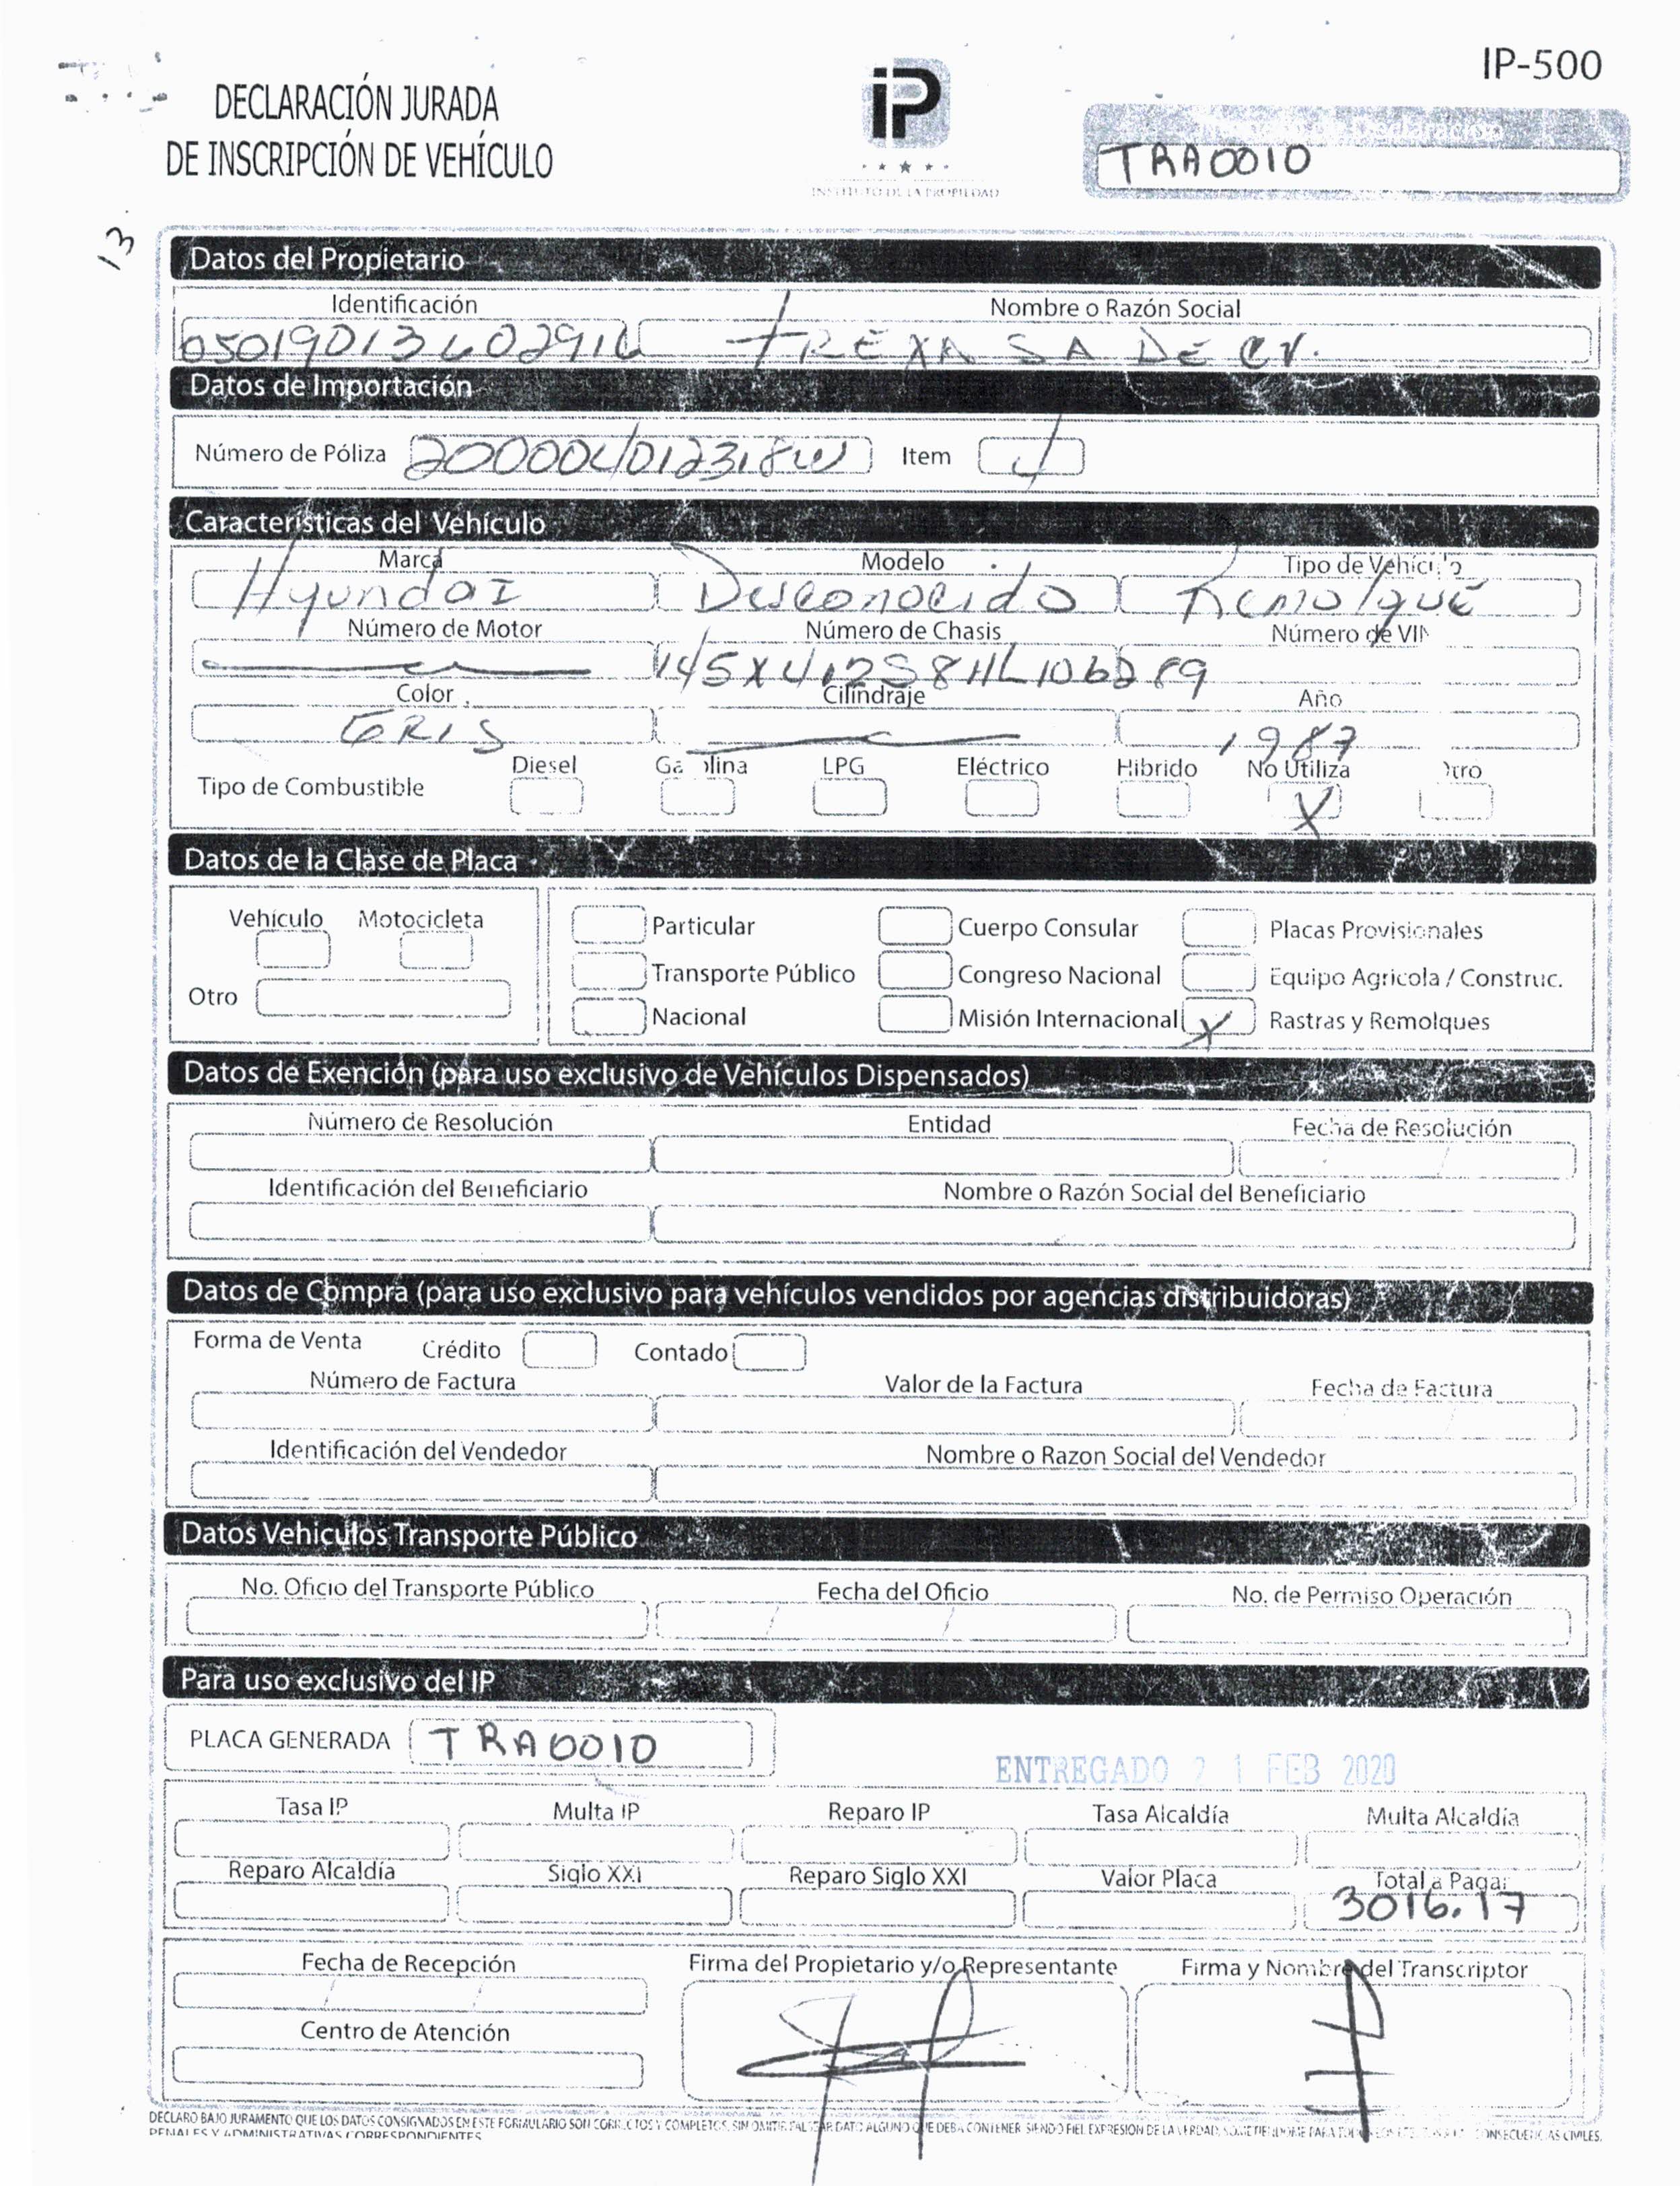 IP-500
DECLARACIÓN JURADA
DE INSCRIPCIÓN DE VEHÍCULO
iP
INSTITUTO DE LA PROPIEDAD
Declaración
TRA0010
13
Datos del Propietario
Identificación Nombre o Razón Social
TREXA SA DE CV.
Datos de Importación
Número de Póliza Item
Características del Vehículo
Marca Modelo Tipo de Vehículo
Hyundai Desconocido Remolque
Número de Motor Número de Chasis Número de VIN
Color Cilindraje Año
GRIS 1987
Tipo de Combustible Diesel Gasolina LPG Eléctrico Hibrido No Utiliza Otro
X
Datos de la Clase de Placa
Vehículo Motocicleta
Otro
Particular Cuerpo Consular Placas Provisionales
Transporte Público Congreso Nacional Equipo Agricola / Construc.
Nacional Misión Internacional X Rastras y Remolques
Datos de Exención (para uso exclusivo de Vehículos Dispensados)
Número de Resolución Entidad Fecha de Resolución
Identificación del Beneficiario Nombre o Razón Social del Beneficiario
Datos de Compra (para uso exclusivo para vehículos vendidos por agencias distribuidoras)
Forma de Venta Crédito Contado
Número de Factura Valor de la Factura Fecha de Factura
Identificación del Vendedor Nombre o Razon Social del Vendedor
Datos Vehiculos Transporte Público
No. Oficio del Transporte Público Fecha del Oficio No. de Permiso Operación
Para uso exclusivo del IP
PLACA GENERADA TRA0010
ENTREGADO 21 FEB 2020
Tasa IP Multa IP Reparo IP Tasa Alcaldía Multa Alcaldía
Reparo Alcaldía Siglo XXI Reparo Siglo XXI Valor Placa Total a Pagar
3016.17
Fecha de Recepción Firma del Propietario y/o Representante Firma y Nombre del Transcriptor
Centro de Atención
DECLARO BAJO JURAMENTO QUE LOS DATOS CONSIGNADOS EN ESTE FORMULARIO SON CORRECTOS Y COMPLETOS, SIN OMITIR FALSEAR DATO ALGUNO QUE DEBA CONTENER SIENDO FIEL EXPRESION DE LA VERDAD, SOMETIENDOME PARA TODOS CONSECUENCIAS CIVILES,
PENALES Y ADMINISTRATIVAS CORRESPONDIENTES